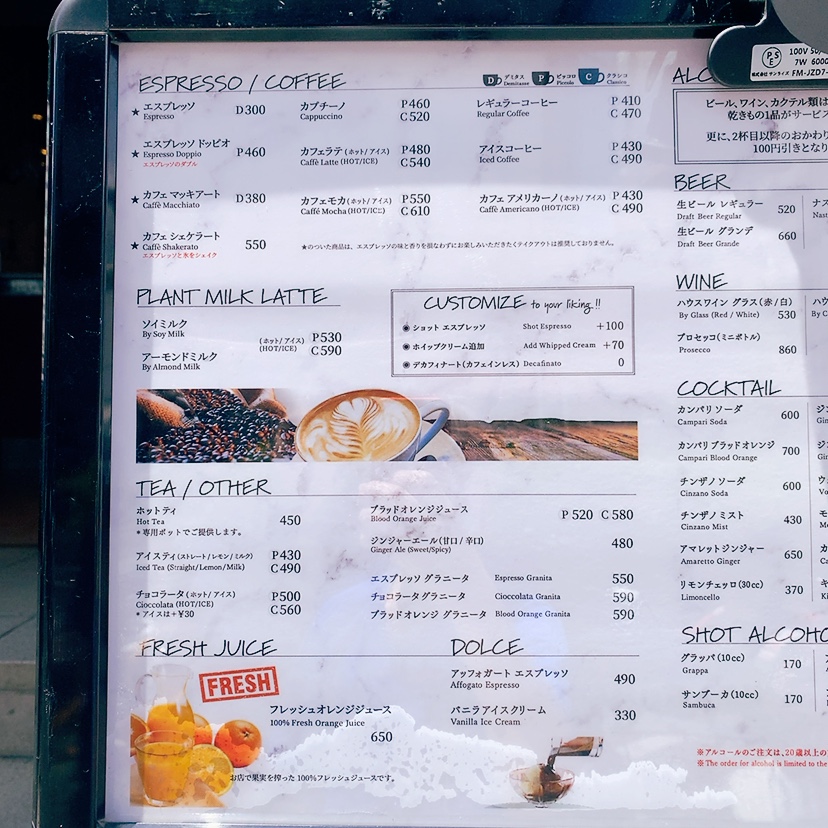 ESPRESSO / COFFEE
D デミタス Demitasse P ピッコロ Piccolo C クラシコ Classico
★ エスプレッソ D300
Espresso
★ エスプレッソ ドッピオ P460
Espresso Doppio
エスプレッソのダブル
★ カフェ マッキアート D380
Caffè Macchiato
★ カフェ シェケラート 550
Caffè Shakerato
エスプレッソと氷をシェイク
カプチーノ P460
Cappuccino C520
カフェラテ (ホット/アイス) P480
Caffè Latte (HOT/ICE) C540
カフェモカ (ホット/アイス) P550
Caffé Mocha (HOT/ICE) C610
レギュラーコーヒー P 410
Regular Coffee C 470
アイスコーヒー P 430
Iced Coffee C 490
カフェ アメリカーノ (ホット/アイス) P 430
Caffè Americano (HOT/ICE) C 490
★のついた商品は、エスプレッソの味と香りを損なわずにお楽しみいただきたくテイクアウトは推奨しておりません。
PLANT MILK LATTE
ソイミルク
By Soy Milk
アーモンドミルク
By Almond Milk
(ホット/アイス) P530
(HOT/ICE) C590
CUSTOMIZE to your liking!!
◉ ショット エスプレッソ Shot Espresso +100
◉ ホイップクリーム追加 Add Whipped Cream +70
◉ デカフィナート(カフェインレス) Decafinato 0
TEA / OTHER
ホットティ 450
Hot Tea
*専用ポットでご提供します。
アイスティ (ストレート/レモン/ミルク) P430
Iced Tea (Straight/Lemon/Milk) C490
チョコラータ (ホット/アイス) P500
Cioccolata (HOT/ICE) C560
*アイスは+¥30
ブラッドオレンジジュース P 520 C 580
Blood Orange Juice
ジンジャーエール(甘口/辛口) 480
Ginger Ale (Sweet/Spicy)
エスプレッソ グラニータ Espresso Granita 550
チョコラータ グラニータ Cioccolata Granita 590
ブラッドオレンジ グラニータ Blood Orange Granita 590
FRESH JUICE
FRESH
フレッシュオレンジジュース
100% Fresh Orange Juice
650
お店で果実を搾った100%フレッシュジュースです。
DOLCE
アッフォガート エスプレッソ 490
Affogato Espresso
バニラアイスクリーム 330
Vanilla Ice Cream
PSE
100V 50/
7W 6000
FM-JZD7-
ALCO
ビール、ワイン、カクテル類は
乾きもの1品がサービス
更に、2杯目以降のおかわり
100円引きとなり
BEER
生ビール レギュラー 520
Draft Beer Regular
生ビール グランデ 660
Draft Beer Grande
WINE
ハウスワイン グラス (赤/白)
By Glass (Red / White) 530
プロセッコ(ミニボトル)
Prosecco 860
COCKTAIL
カンパリ ソーダ 600
Campari Soda
カンパリ ブラッドオレンジ 700
Campari Blood Orange
チンザノ ソーダ 600
Cinzano Soda
チンザノ ミスト 430
Cinzano Mist
アマレットジンジャー 650
Amaretto Ginger
リモンチェッロ (30cc) 370
Limoncello
SHOT ALCOHO
グラッパ (10cc) 170
Grappa
サンブーカ (10cc) 170
Sambuca
※アルコールのご注文は、20歳以上の
※The order for alcohol is limited to the